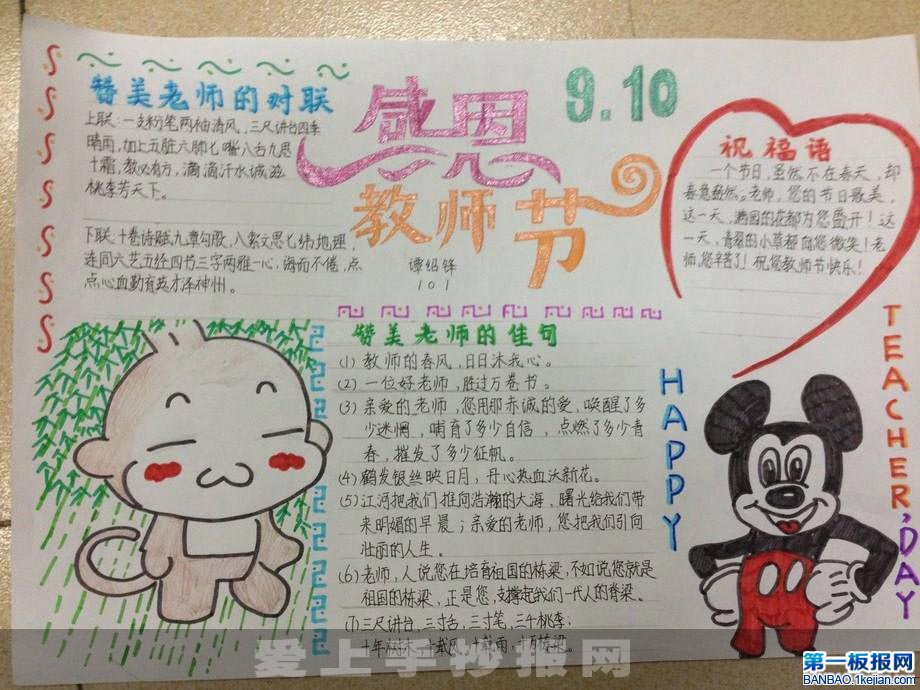 赞美老师的对联
上联:一支粉笔两袖清风,三尺讲台四季
晴雨,加上五脏六肺七嘴八舌九思
十霜,教必有方,滴滴汗水诚滋
桃李芳天下。
下联:十卷诗赋九章勾股,八索文思七纬地理,
连同六艺五经四书三字两雅一心,诲而不倦,点
点心血勤育英才泽神州。
感恩
教师节
谭绍锋
101
9.10
祝福语
一个节日,虽然不在春天,却
春意盎然。老师,您的节日最美,
这一天,满园的花都为您盛开!这
一天,青翠的小草都向您微笑!老
师,您辛苦了!祝您教师节快乐!
赞美老师的佳句
(1) 教师的春风,日日沐我心。
(2) 一位好老师,胜过万卷书。
(3) 亲爱的老师,您用那赤诚的爱,唤醒了多
少迷惘,哺育了多少自信,点燃了多少青
春,摧发了多少征帆。
(4) 鹤发银丝映日月,丹心热血沃新花。
(5) 江河把我们推向浩瀚的大海,曙光给我们带
来明媚的早晨;亲爱的老师,您把我们引向
壮丽的人生。
(6) 老师,人说您在培育祖国的栋梁,不如说您就是
祖国的栋梁,正是您,支撑起我们一代人的脊梁。
(7) 三尺讲台,三寸舌,三寸笔,三千桃李;
十年树木,十载风,十载雨,十万栋梁。
HAPPY
TEACHER'DAY
爱上手抄报网
第一板报网
BANBAO.1kejian.com